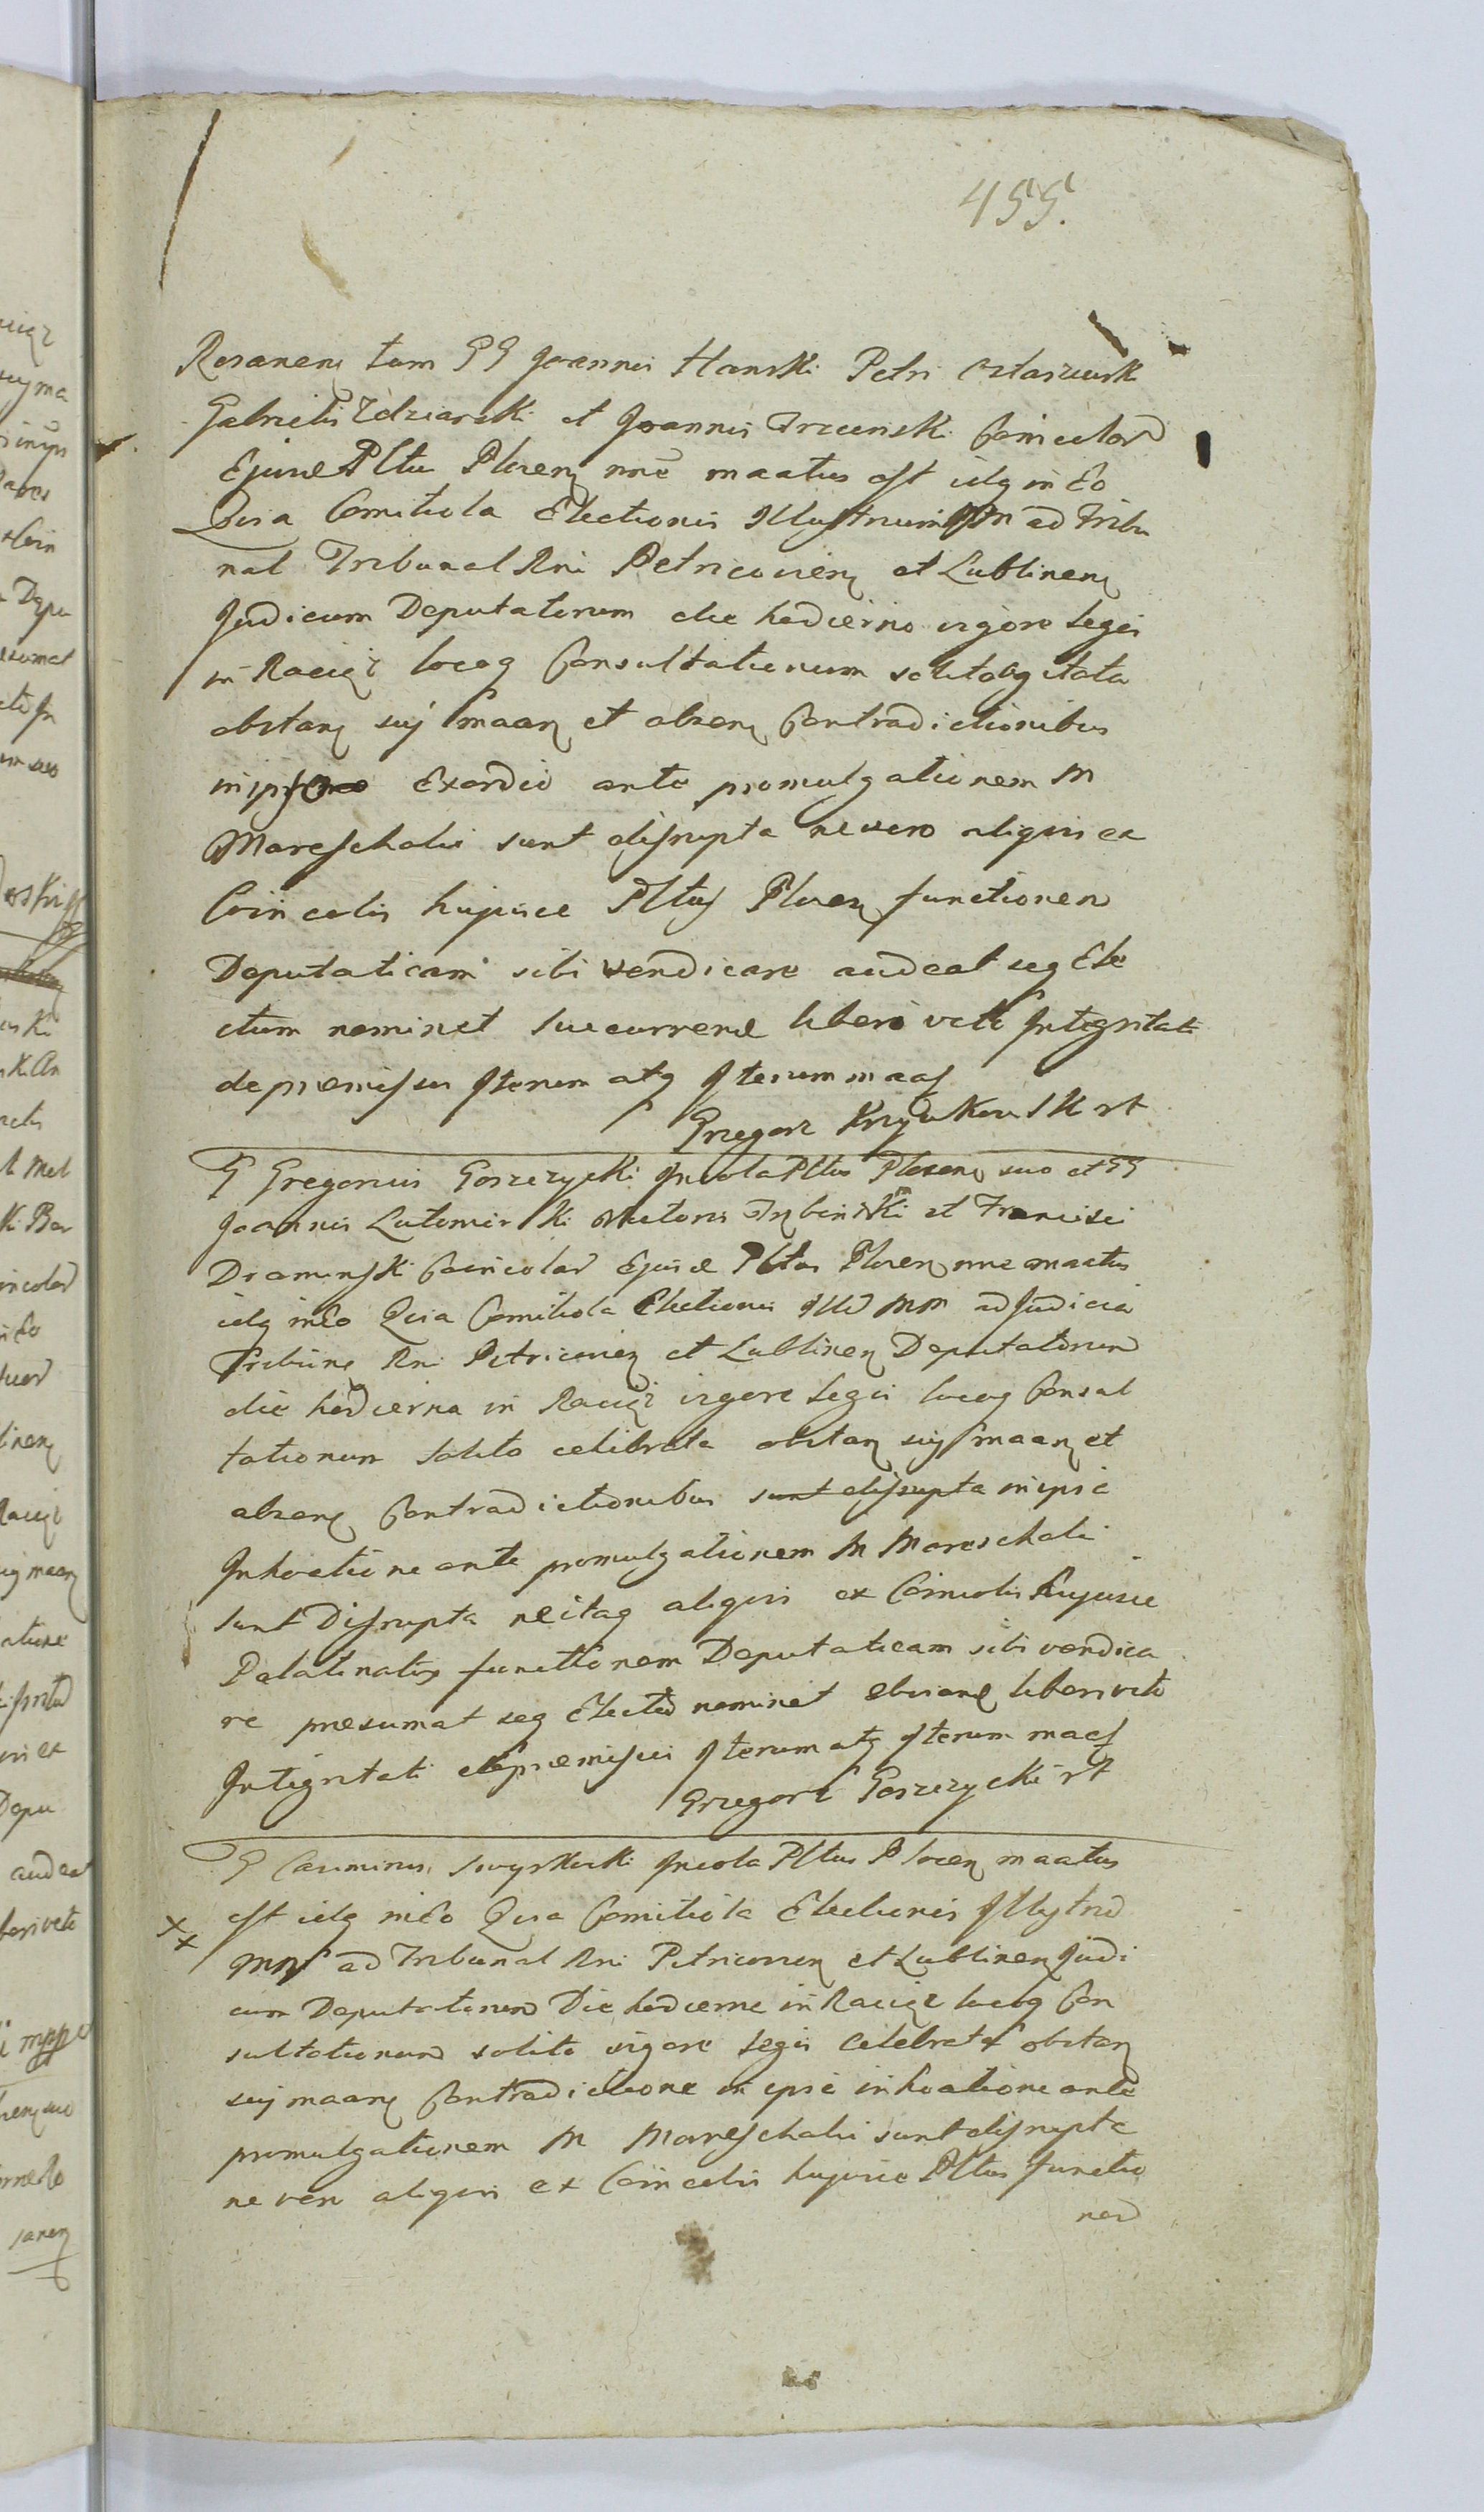 455.
Rosanen tum GG Joannis Hanski Petri
Gabrielis Zdziarski et Joannis Trzcinski Coincolar
Ejusd Pltus Plocen nne maatus est idq in Eo
Quia Comitiola Electionis Illustrium MM ad Tribu
nal Tribunal Rni Petricovien et Lublinen
Judicum Deputatorum die hodierno vigore Legis
in Raciąz locoq Consultationum solito agitata
obstan suj maan et alioru Contradictionibus
in ipso Exordio ante promulgationem M
Mareschalis sunt disrupta ne vero aliquis ex
Coincolis hujusce Pltus Plocen functionem
Deputaticam sibi vendicare audeat seq Ele
ctum nominet succurrend liberi veto Integritati
de premissis Iterum atq Iterum maaf
Grzegorz Krzywkowski rt
G Gregorius Goszczycki Incola Pltus Plocen suo et GG
Joannis Lutomirski et Francisci
Dramiński Coincolar Ejusd Pltus Plocen nne maatus
idq in Eo Quia Comitiola Electionis Ill MM ad Judicia
Tribune Rni Petricovien et Lublinen Deputatorum
die hodierna in Raciąz vigore Legis locoq Consul
tationum solito celebrata obstan suj maan et
alioru Contradictionibus sunt disrupta in ipse
Inhoatione ante promulgationem M Mareschali
sunt Disrupta ne itaq aliquis ex Coincolis hujusce
Palatinatus functionem Deputaticam sibi vendica
re presumat seq Electum nominet liberi veto
Integritati de premissis Iterum atq Iterum maaf
Grzegorz Goszczycki rt
G Casimirus Incola Pltus Plocen maatus
est idq in Eo Quia Comitiola Electionis Illustrium
MM ad Tribunal Rni Petricovien et Lublinen Judi
cum Deputatorum Die hodierne in Raciąz locoq Con
sultationum solito vigore Legis Celebrata obstan
suj maan Contradictione in ipse inhoatione ante
promulgationem M Mareschalis sunt disrupta
ne vero aliquis ex Coincolis hujusce Pltus functio
nem